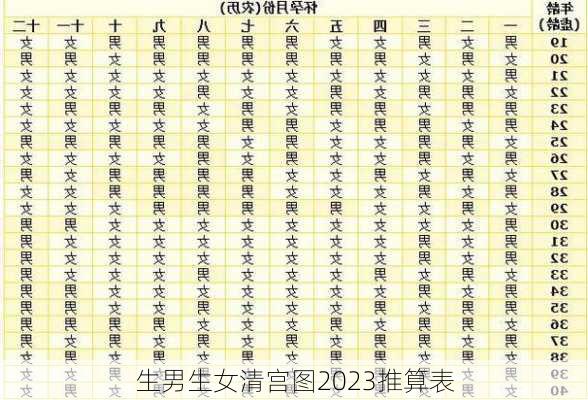 年龄
(虚龄) 怀孕月份(农历)
一 二 三 四 五 六 七 八 九 十 十一 十二
19 男 女 男 女 女 男 男 男 男 男 女 女
20 女 男 女 男 男 男 男 男 男 女 男 男
21 男 女 女 女 女 女 女 女 女 女 女 女
22 女 男 男 女 男 女 女 男 女 女 女 女
23 男 男 女 男 男 女 男 女 男 男 男 女
24 男 女 男 男 女 男 男 女 女 女 女 女
25 女 男 男 女 女 男 女 男 男 男 男 男
26 男 女 男 女 女 男 女 男 女 女 女 女
27 女 男 女 男 女 女 男 男 男 男 女 男
28 男 女 男 女 女 女 男 男 男 男 女 女
29 女 男 女 女 男 男 男 男 男 女 女 女
30 男 女 女 女 女 女 女 女 女 女 男 男
31 男 女 男 女 女 女 女 女 女 女 女 男
32 男 女 男 女 女 女 女 女 女 女 女 男
33 女 男 女 男 女 女 女 男 女 女 女 男
34 男 女 男 女 女 女 女 女 女 女 男 男
35 男 男 女 男 女 女 女 男 女 女 男 男
36 女 男 男 女 男 女 女 女 男 男 男 男
37 男 女 男 男 女 男 女 男 女 男 女 男
38 女 男 女 男 男 女 男 女 男 女 男 女
39
40
生男生女清宫图2023推算表